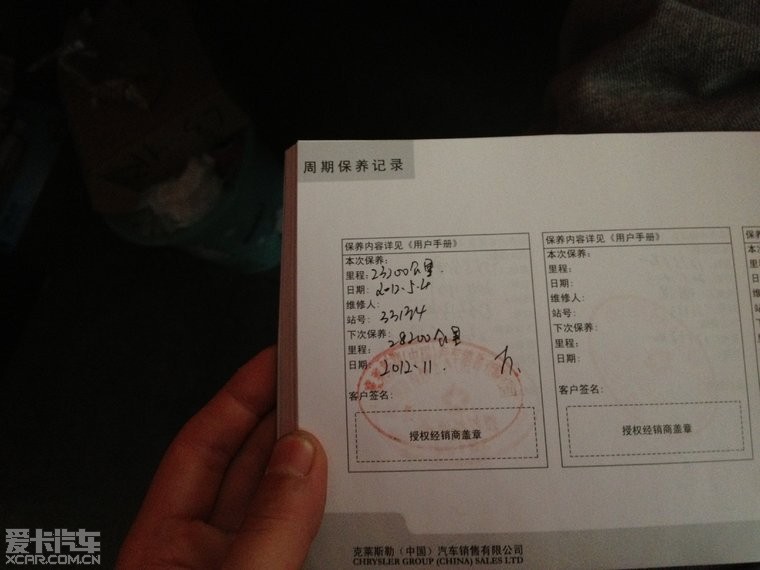 周期保养记录
保养内容详见《用户手册》
本次保养:
里程: 23200公里.
日期: 2012.5.4
维修人:
站号: 33134
下次保养:
里程: 28200公里
日期: 2012.11.
客户签名:
授权经销商盖章
保养内容详见《用户手册》
本次保养:
里程:
日期:
维修人:
站号:
下次保养:
里程:
日期:
客户签名:
授权经销商盖章
克莱斯勒(中国)汽车销售有限公司
CHRYSLER GROUP (CHINA) SALES LTD
爱卡汽车
XCAR.COM.CN